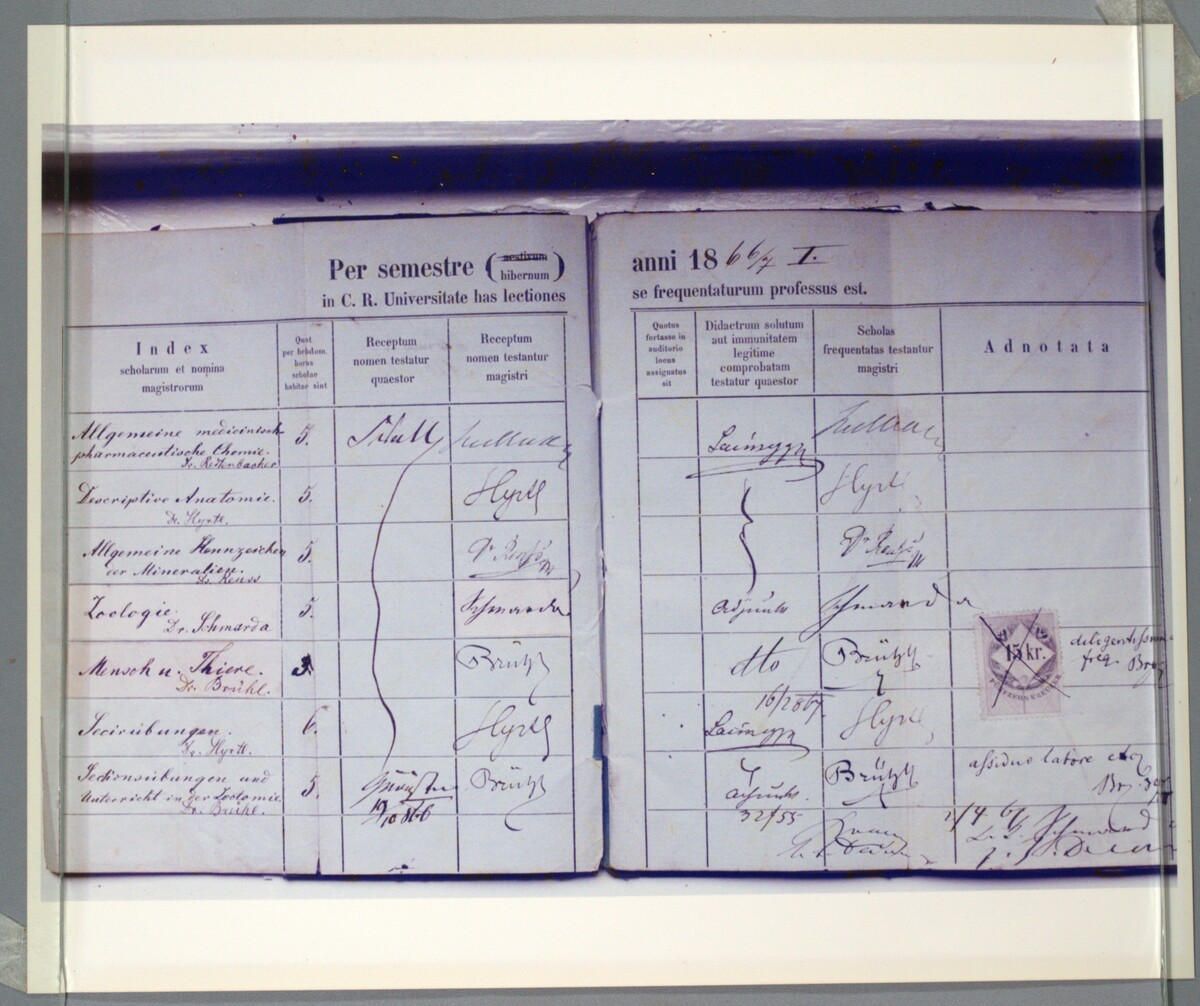 Per semestre (aestivum hibernum)
in C. R. Universitate has lectiones
anni 1866/7 I.
se frequentaturum professus est.
Index
scholarum et nomina
magistrorum
Quot
per hebdom.
horas
scholae
habitae sint
Receptum
nomen testatur
quaestor
Receptum
nomen testantur
magistri
Quotus
fortasse in
auditorio
locus
assignatus
sit
Didactrum solutum
aut immunitatem
legitime
comprobatam
testatur quaestor
Scholas
frequentatas testantur
magistri
Adnotata
Allgemeine medicinisch
pharmaceutische Chemie.
Dr. Redtenbacher
5.
Descriptive Anatomie.
Dr. Hyrtl.
5.
Hyrtl
Hyrtl
Allgemeine Kennzeichen
der Mineralien.
Dr. Reuss
5.
Dr Reuß
Dr Reuß
Zoologie.
Dr. Schmarda
5.
Schmarda
Schmarda
Mensch u. Thiere.
Dr. Brühl.
3.
Brühl
dto
Brühl
15 kr.
Secirübungen.
Dr. Hyrtl.
6.
Hyrtl
16/2 867
Hyrtl
Sectionsübungen und
Unterricht in der Zootomie
Dr. Brühl.
5.
19/10 866
Brühl
Brühl
assiduo labore